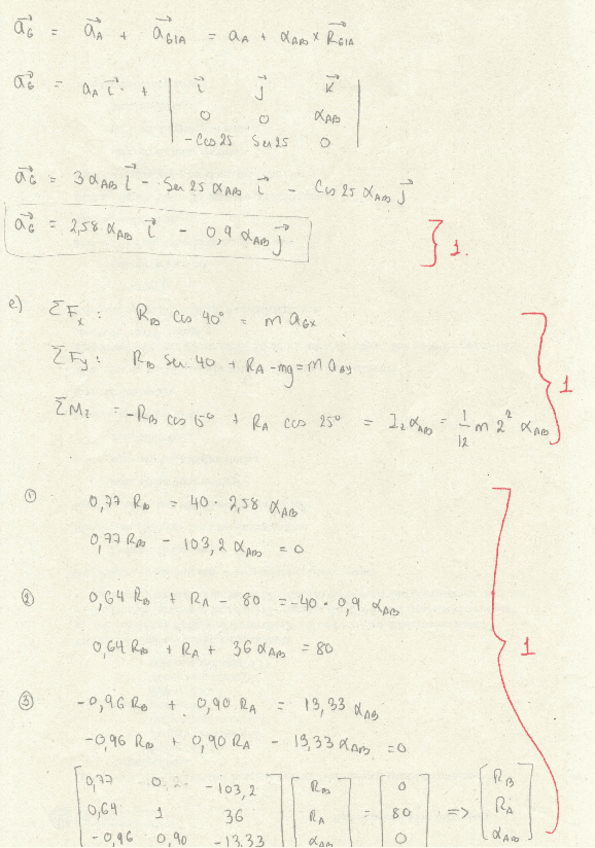 a⃗G = a⃗A + a⃗G/A = aA + αAB × R⃗G/A
a⃗G = aA i⃗ + | i⃗ j⃗ k⃗ |
| 0 0 αAB |
| -Cos 25 Sen 25 0 |
a⃗G = 3 αAB i⃗ - Sen 25 αAB i⃗ - Cos 25 αAB j⃗
a⃗G = 2,58 αAB i⃗ - 0,9 αAB j⃗ } 1.
e) ΣFx : RB cos 40° = m aGx
ΣFy : RB Sen 40 + RA - mg = m aGy
ΣMz = -RB cos 15° + RA cos 25° = Iz αAB = 1/12 m 2² αAB } 1
① 0,77 RB = 40 · 2,58 αAB
0,77 RB - 103,2 αAB = 0
② 0,64 RB + RA - 80 = -40 · 0,9 αAB
0,64 RB + RA + 36 αAB = 80 } 1
③ -0,96 RB + 0,90 RA = 13,33 αAB
-0,96 RB + 0,90 RA - 13,33 αAB = 0
[0,77 0 -103,2] [RB] [0] [RB]
[0,64 1 36] [RA] = [80] => [RA]
[-0,96 0,90 -13,33] [αAB] [0] [αAB]